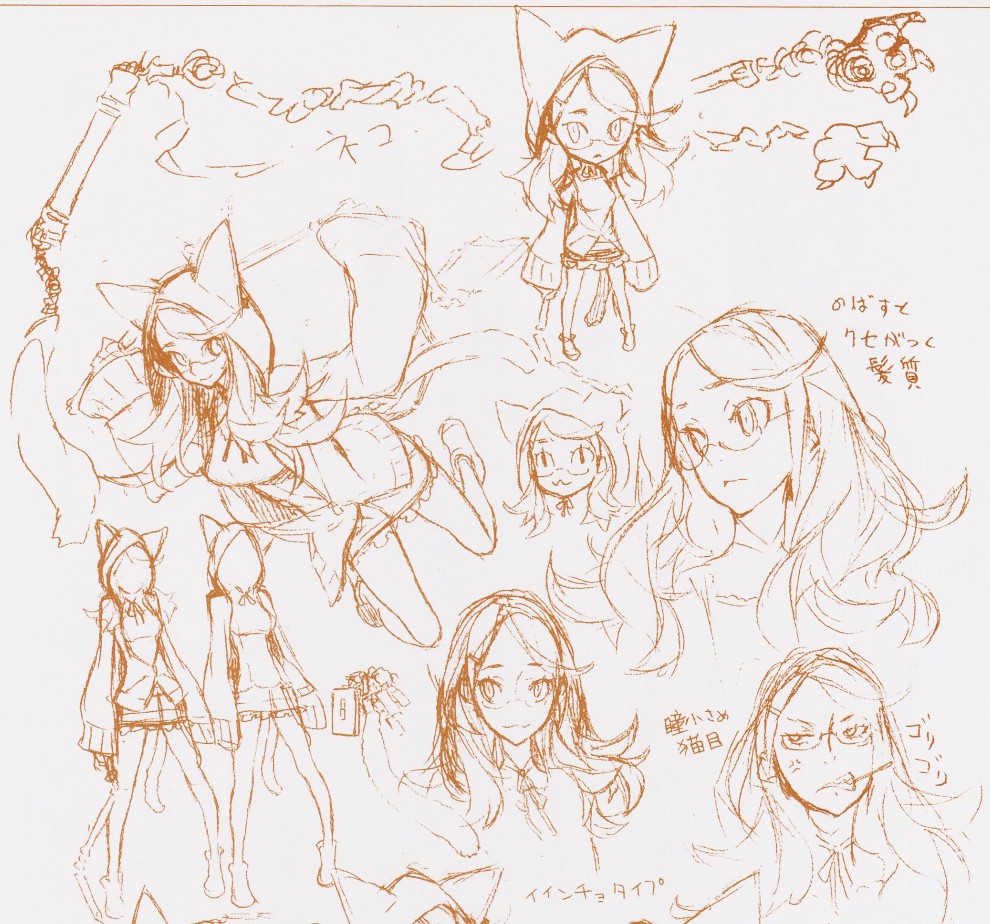 ネコ
のばすと
クセがつく
髪質
瞳小さめ
猫目
ゴリ
ゴリ
イインチョタイプ